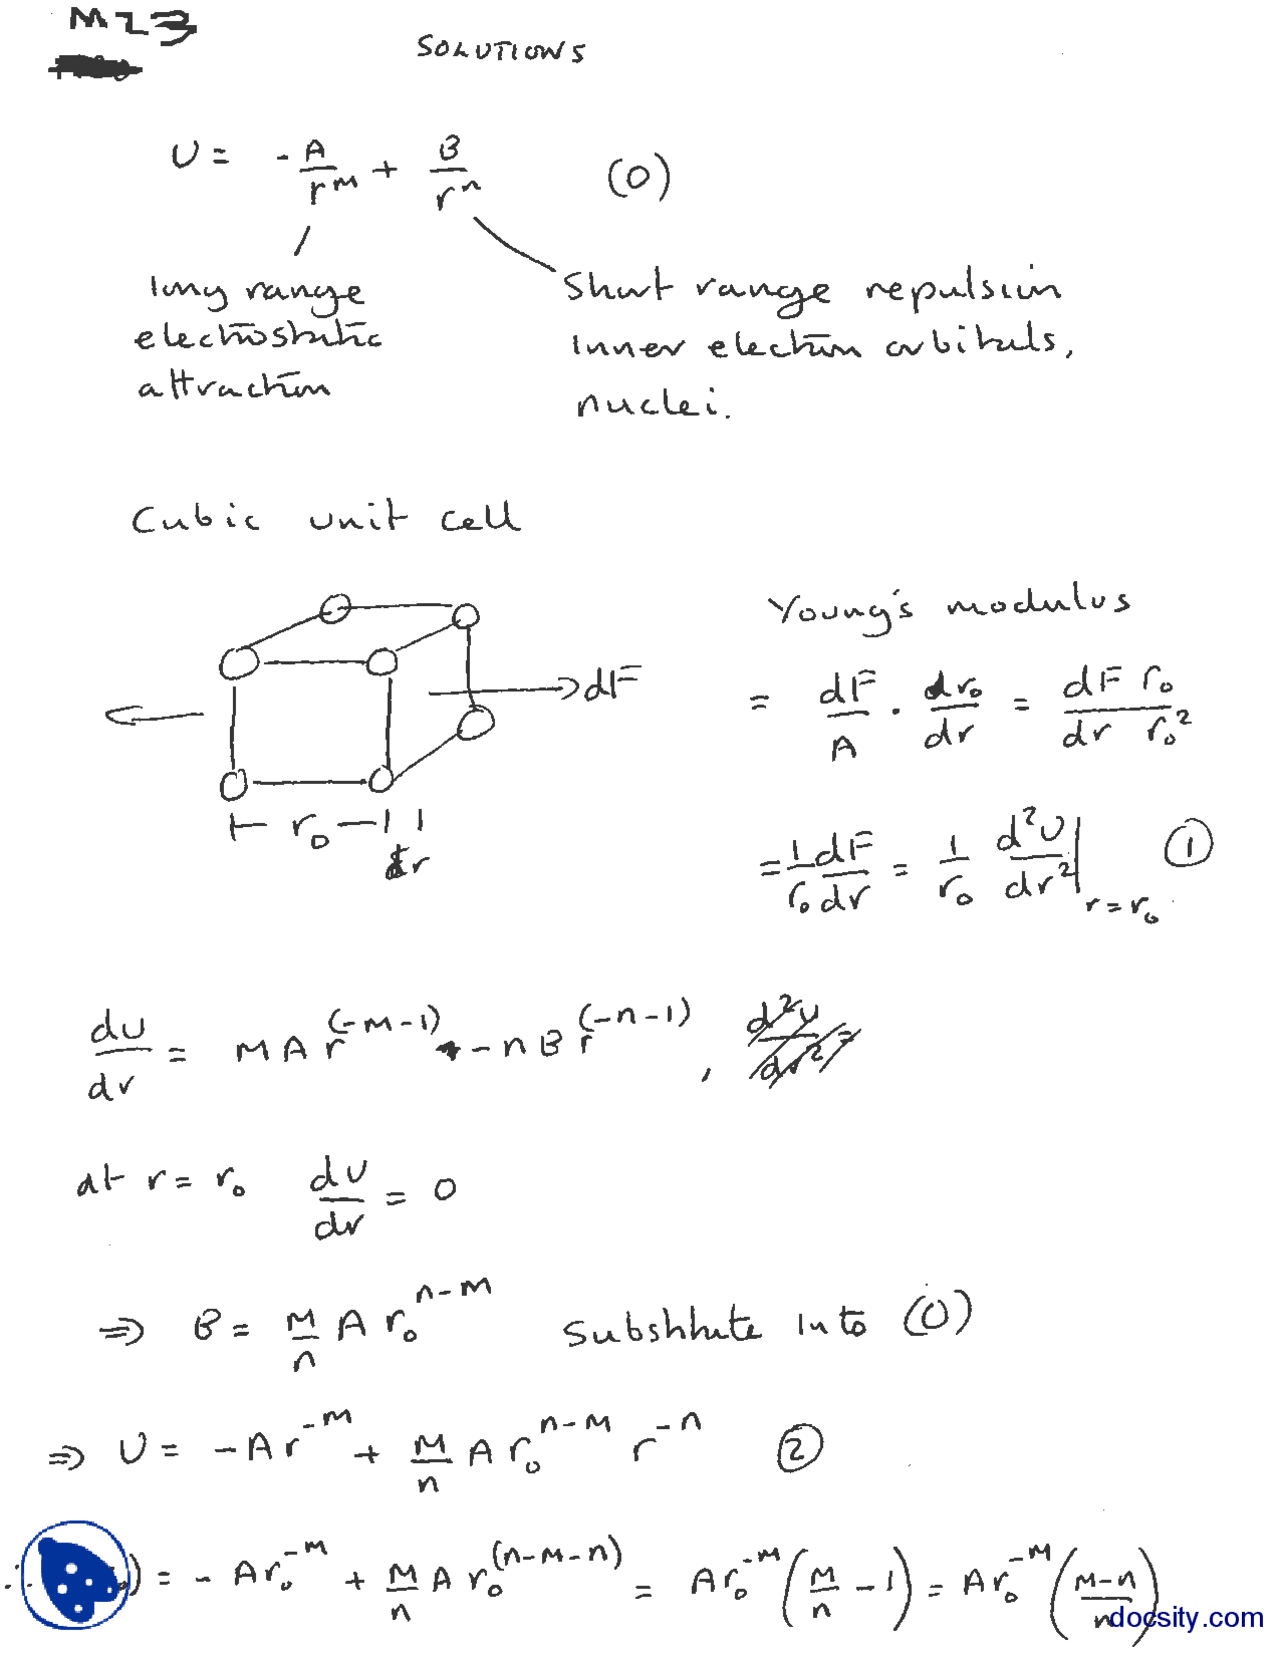 MZ3
SOLUTIONS
U = -A/r^m + B/r^n (0)
long range
electrostatic
attraction
Short range repulsion
inner electron orbitals,
nuclei.
Cubic unit cell
Young's modulus
= dF/A . dr₀/dr = dF r₀/dr r₀²
dF
r₀
dr
= 1/r₀ dF/dr = 1/r₀ d²U/dr²|r=r₀ ①
dU/dr = MAr^(-m-1) - nBr^(-n-1), d²U/dr² =
at r = r₀ dU/dr = 0
⇒ B = M/n A r₀^n-m Substitute into (0)
⇒ U = -Ar^-m + M/n A r₀^n-m r^-n ②
∴ ) = -Ar₀^-m + M/n A r₀^(n-m-n) = Ar₀^-m (M/n - 1) = Ar₀^-m (M-n/n)
docsity.com